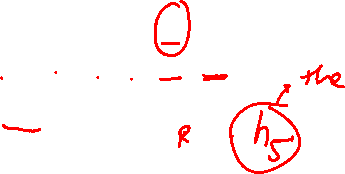 the
R
h5